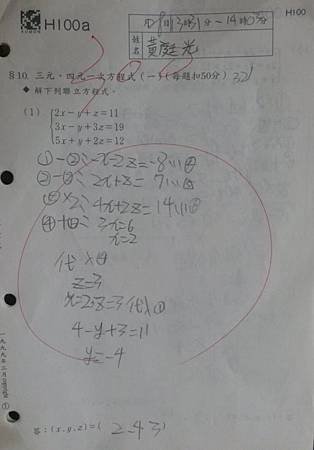 H100a
H100
KUMON
姓名 黃庭光
§10. 三元・四元一次方程式(一)(每題扣50分)
◆ 解下列聯立方程式。
(1) 2x−y+z=11
3x−y+3z=19
5x+y+2z=12
①−②: −x−2z=−8...④
2x+z=7...⑤
⑤×2: 4x+2z=14...⑥
④+⑥: 3x=6
x=2
代入④
z=3
x=2 z=3 代入①
4−y+3=11
y=−4
答:(x,y,z)=( 2 −4 3 )